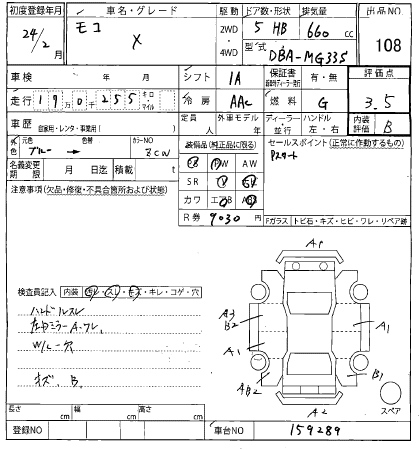 初度登録年月 車名・グレード 駆動 ドア数・形状 排気量 出品NO
24/2月 モコ X 2WD 4WD 5 HB 660cc 108
型式 DBA-MG33S
車検 年 月 シフト IA 保証書 有・無 評価点
走行 19万0千255 キロ マイル 冷房 AAC 燃料 G 3.5
車歴 自家用・レンタ・事業用( ) 定員 人 外車モデル 年 ディーラー・並行 ハンドル 左・右 内装評価 B
外色 元色 ブルー 色替 カラーNO ZCW
装備品(純正品に限る) セールスポイント(正常に作動するもの)
名義変更期限 月 日迄 積載 t
PW AW Pスタート
注意事項(欠品・修復・不具合箇所および状態)
SR
カワ
R券 9030円
Fガラス トビ石・キズ・ヒビ・ワレ・リペア跡
検査員記入 内装 汚レ・スレ・キズ・キレ・コゲ・穴
ハンドルスレ
W/L-穴
キズ、B。
A1
A3
B2
A1
A1
AB2
B1
A2
スペア
長さ cm 幅 cm 高さ cm
登録NO 車台NO 159289